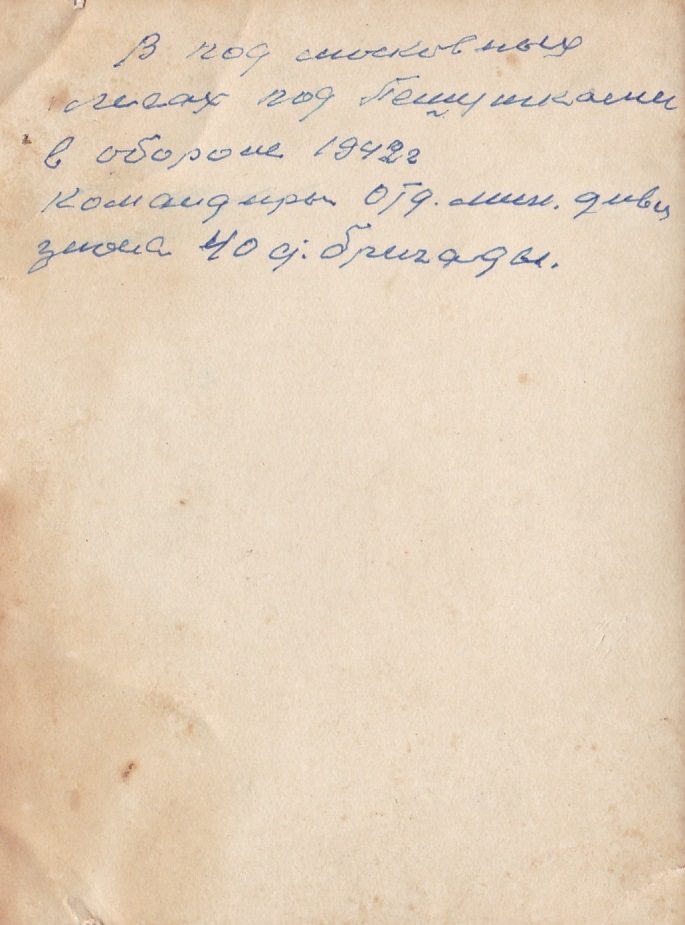 В под московных
лесах под Петушками
в обороне 1942г
командиры отд. мин. диви
зиона 40 с. бригады.